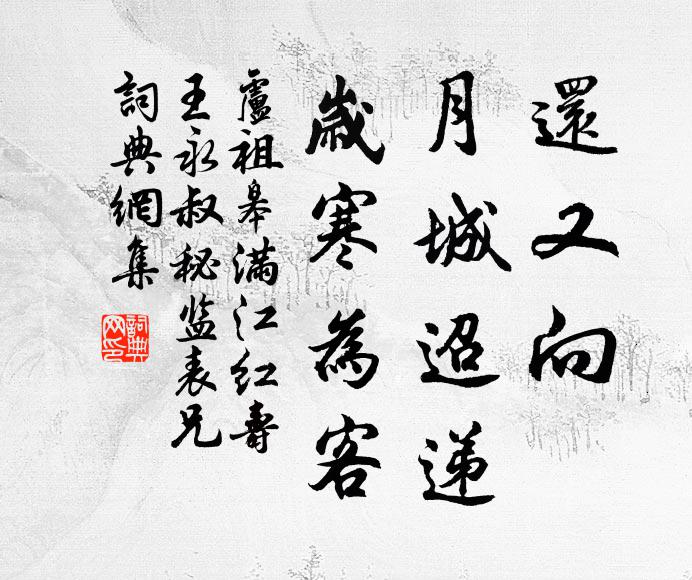 還又向
月城迢递
歲寒為客
盧祖皋滿江紅壽
王永叔秘监表兄
詞典網集
詞典
网印